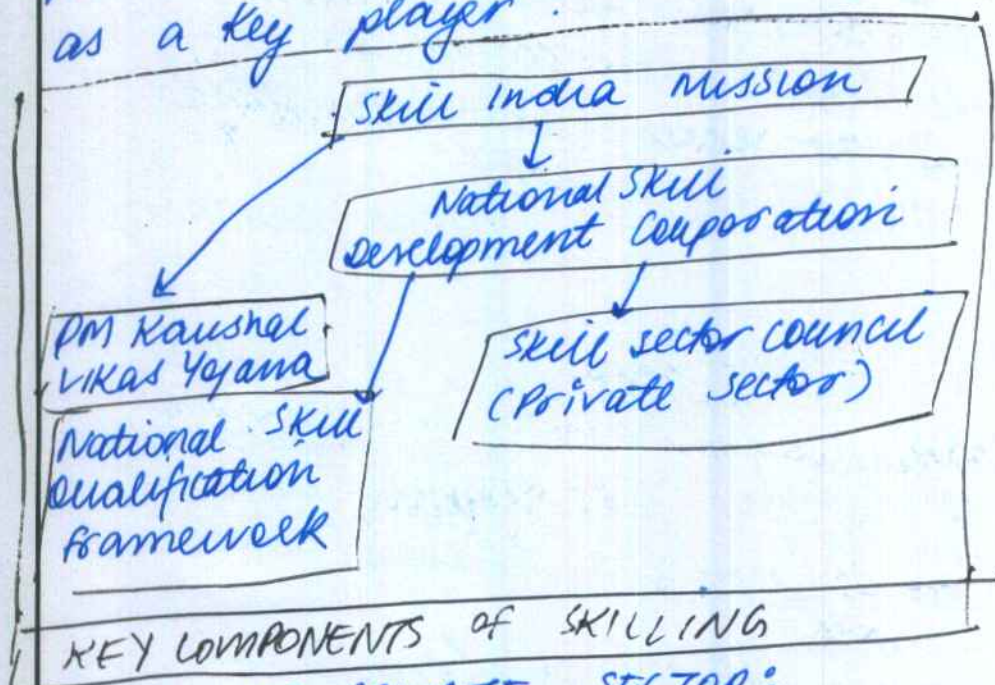 as a key player.
Skill India Mission
National Skill
Development Corporation
PM Kaushal
Vikas Yojana
Skill sector council
(Private sector)
National Skill
Qualification
framework
KEY COMPONENTS of SKILLING
SECTOR: